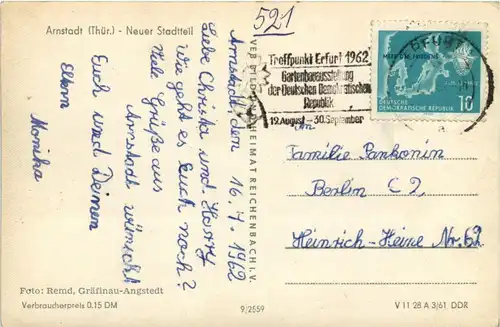 Arnstadt (Thür.) - Neuer Stadtteil
521
Arnstadt, den 16.7.1962
Liebe Christa und Horst
Wie geht es Euch noch?
Viele Grüße aus
Arnstadt wünscht
Euch und Deinen
Eltern
Monika
VEB BILD HEIMAT REICHENBACH i. V.
Treffpunkt Erfurt 1962
Gartenbauausstellung
der Deutschen Demokratischen
Republik
19. August - 30. September
ERFURT
DEUTSCHE
DEMOKRATISCHE REPUBLIK
10
An
Familie Pankonin
Berlin C 2
Heinrich-Heine Nr. 62
Foto: Remd, Gräfinau-Angstedt
Verbraucherpreis 0.15 DM
9/2559
V 11 28 A 3/61 DDR